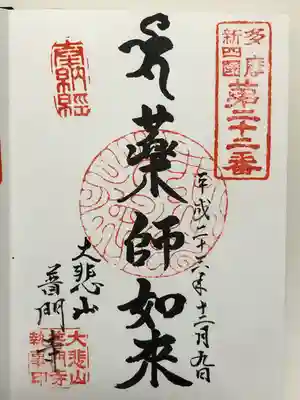 多摩
新四國
第二十二番
奉納経
薬師如来
平成二十六年十二月九日
大悲山
普門寺
大悲山
普門寺
執事印